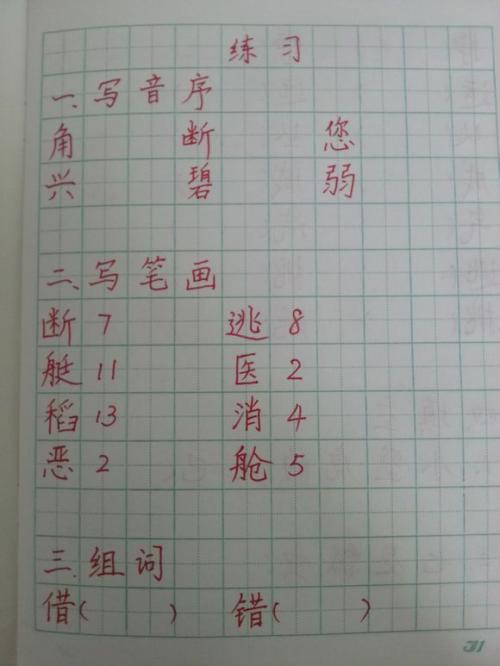 练习
一、写音序
角 断 您
兴 碧 弱
二、写笔画
断 7 逃 8
艇 11 医 2
稻 13 消 4
恶 2 舱 5
三、组词
借( ) 错( )
31